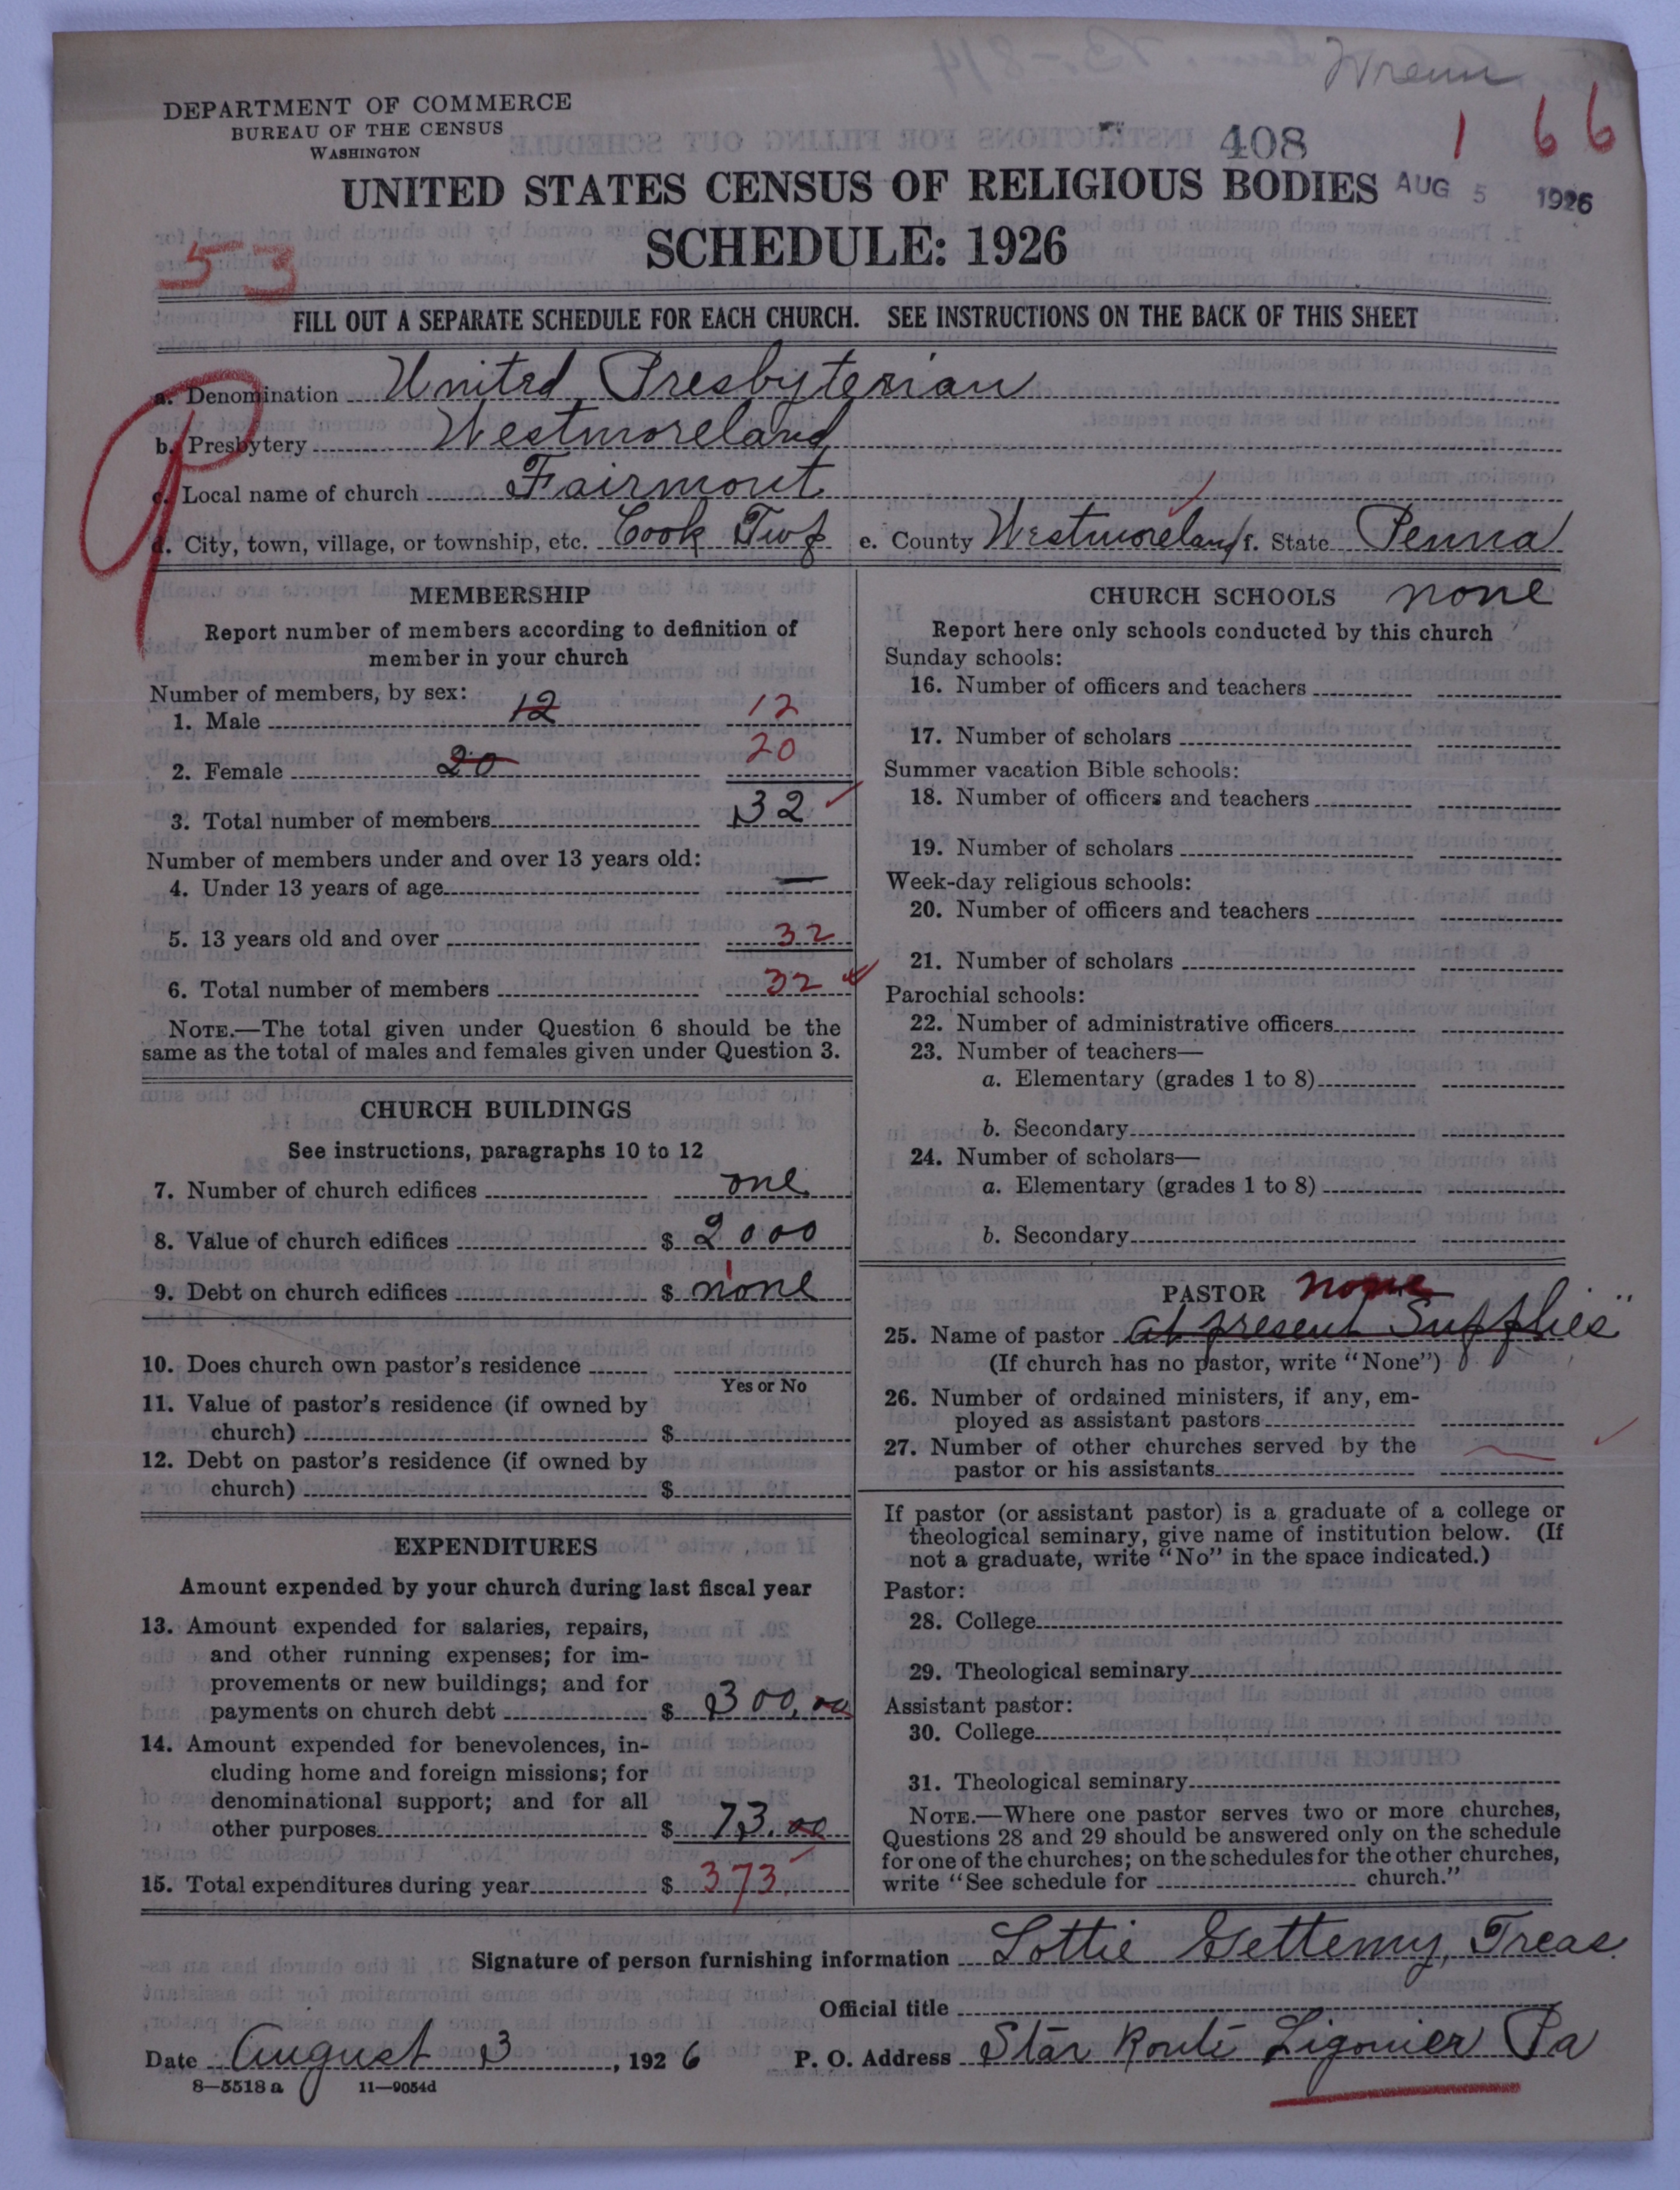 Wrenn
DEPARTMENT OF COMMERCE
BUREAU OF THE CENSUS
WASHINGTON
408
1 66
UNITED STATES CENSUS OF RELIGIOUS BODIES
AUG 5 1926
SCHEDULE: 1926
53
FILL OUT A SEPARATE SCHEDULE FOR EACH CHURCH. SEE INSTRUCTIONS ON THE BACK OF THIS SHEET
a. Denomination United Presbyterian
b. Presbytery Westmoreland
c. Local name of church Fairmont
d. City, town, village, or township, etc. Cook Twp e. County Westmoreland f. State Penna
MEMBERSHIP
Report number of members according to definition of
member in your church
Number of members, by sex:
1. Male 12 12
2. Female 20 20
3. Total number of members 32
Number of members under and over 13 years old:
4. Under 13 years of age —
5. 13 years old and over 32
6. Total number of members 32
NOTE.—The total given under Question 6 should be the
same as the total of males and females given under Question 3.
CHURCH BUILDINGS
See instructions, paragraphs 10 to 12
7. Number of church edifices one
8. Value of church edifices $ 2000
9. Debt on church edifices $ none
10. Does church own pastor's residence
Yes or No
11. Value of pastor's residence (if owned by
church) $
12. Debt on pastor's residence (if owned by
church) $
EXPENDITURES
Amount expended by your church during last fiscal year
13. Amount expended for salaries, repairs,
and other running expenses; for im-
provements or new buildings; and for
payments on church debt $ 300.00
14. Amount expended for benevolences, in-
cluding home and foreign missions; for
denominational support; and for all
other purposes $ 73.00
15. Total expenditures during year $ 373.
CHURCH SCHOOLS none
Report here only schools conducted by this church
Sunday schools:
16. Number of officers and teachers
17. Number of scholars
Summer vacation Bible schools:
18. Number of officers and teachers
19. Number of scholars
Week-day religious schools:
20. Number of officers and teachers
21. Number of scholars
Parochial schools:
22. Number of administrative officers
23. Number of teachers—
a. Elementary (grades 1 to 8)
b. Secondary
24. Number of scholars—
a. Elementary (grades 1 to 8)
b. Secondary
PASTOR none
25. Name of pastor at present Supplies"
(If church has no pastor, write "None")
26. Number of ordained ministers, if any, em-
ployed as assistant pastors
27. Number of other churches served by the
pastor or his assistants
If pastor (or assistant pastor) is a graduate of a college or
theological seminary, give name of institution below. (If
not a graduate, write "No" in the space indicated.)
Pastor:
28. College
29. Theological seminary
Assistant pastor:
30. College
31. Theological seminary
NOTE.—Where one pastor serves two or more churches,
Questions 28 and 29 should be answered only on the schedule
for one of the churches; on the schedules for the other churches,
write "See schedule for church."
Signature of person furnishing information Lottie Gettemy, Treas.
Official title
Date August 3, 1926 P. O. Address Star Route Ligonier Pa
8—5518 a 11—9054d